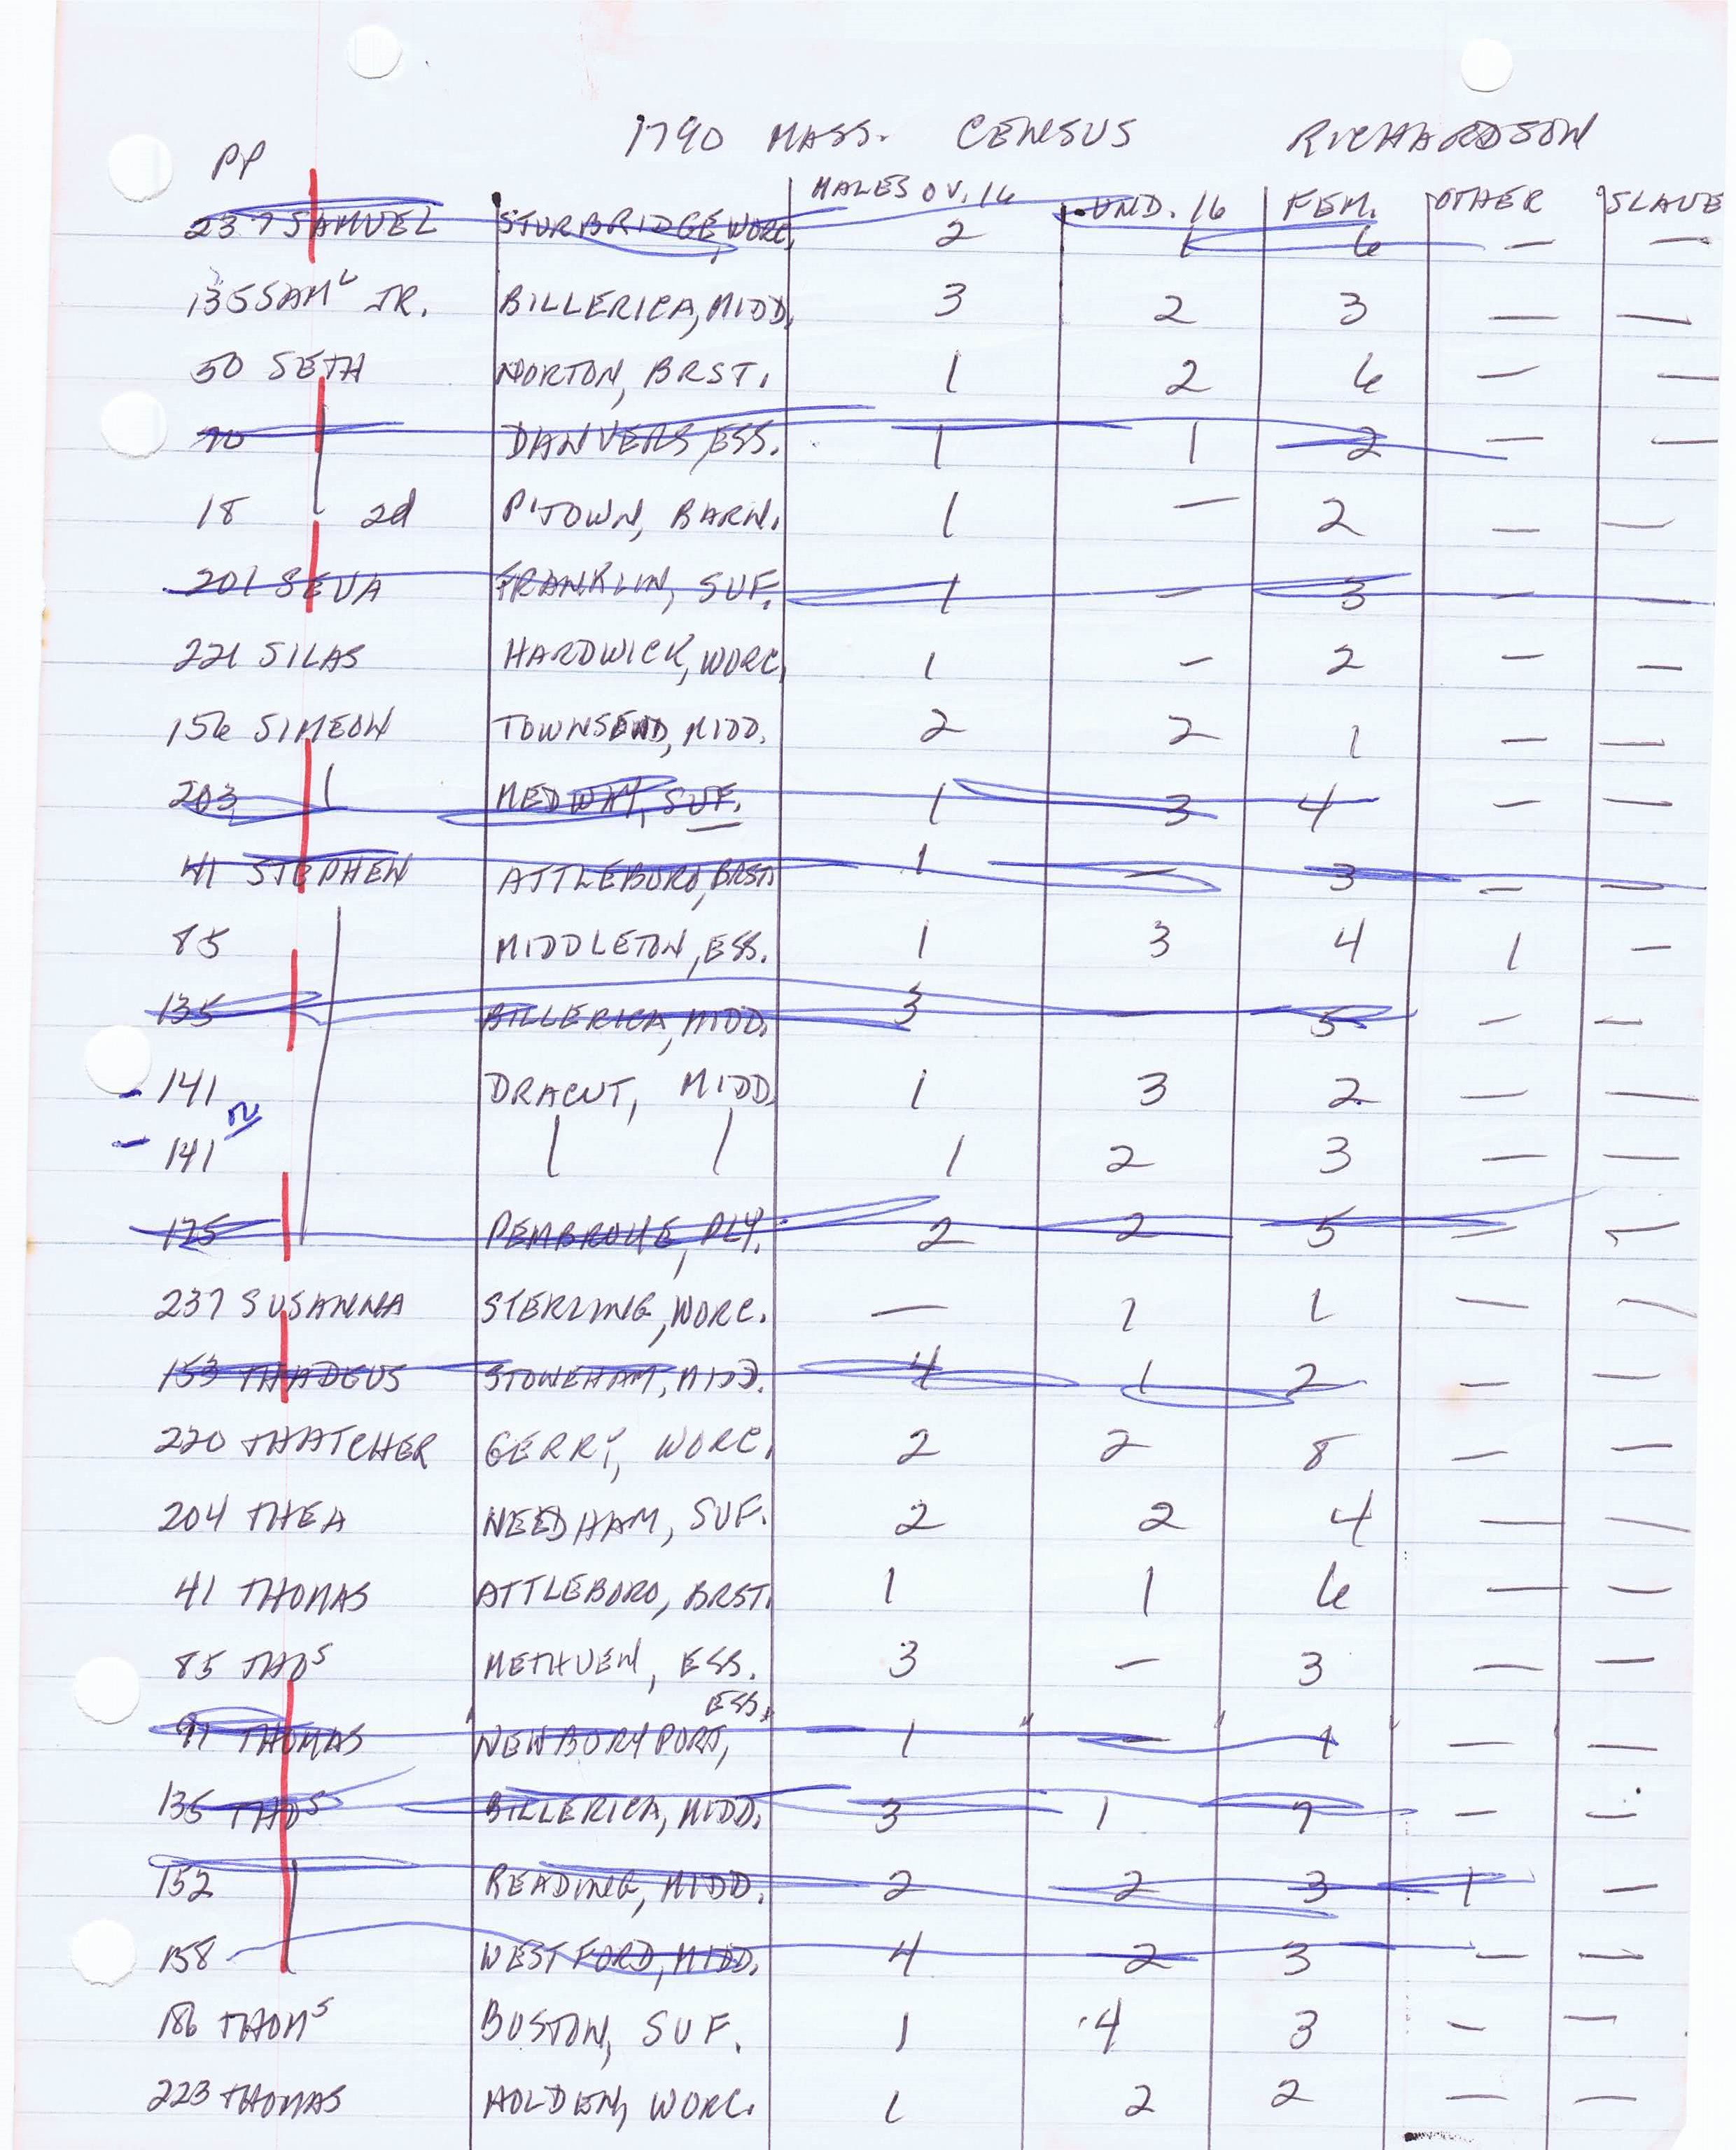 1790 MASS. CENSUS RICHARDSON
PP MALES OV. 16 UND. 16 FEM. OTHER SLAVE
237 SAMUEL STURBRIDGE, WORC. 2 1 6 — —
135 SAMᴸ JR. BILLERICA, MIDD. 3 2 3 — —
50 SETH NORTON, BRST. 1 2 6 — —
90 DANVERS, ESS. 1 1 2 — —
18 2d P'TOWN, BARN. 1 — 2 — —
201 SEVA FRANKLIN, SUF. 1 — 3 — —
221 SILAS HARDWICK, WORC. 1 — 2 — —
156 SIMEON TOWNSEND, MIDD. 2 2 1 — —
203 MEDWAY, SUF. 1 3 4 — —
41 STEPHEN ATTLEBORO, BRST. 1 — 3 — —
85 MIDDLETON, ESS. 1 3 4 1 —
135 BILLERICA, MIDD. 3 — 5 — —
- 141 DRACUT, MIDD. 1 3 2 — —
- 141 1 2 3 — —
175 PEMBROKE, PLY. 2 2 5 — —
237 SUSANNA STERLING, WORC. — 1 1 — —
153 THADEUS STONEHAM, MIDD. 4 1 2 — —
220 THATCHER GERRY, WORC. 2 2 8 — —
204 THEA NEEDHAM, SUF. 2 2 4 — —
41 THOMAS ATTLEBORO, BRST. 1 1 6 — —
85 THOˢ METHUEN, ESS. 3 — 3 — —
91 THOMAS NEWBURYPORT, ESS. 1 — 1 — —
135 THOˢ BILLERICA, MIDD. 3 1 7 — —
152 READING, MIDD. 2 2 3 1 —
158 WESTFORD, MIDD. 4 2 3 — —
186 THOMˢ BOSTON, SUF. 1 4 3 — —
223 THOMAS HOLDEN, WORC. 1 2 2 — —